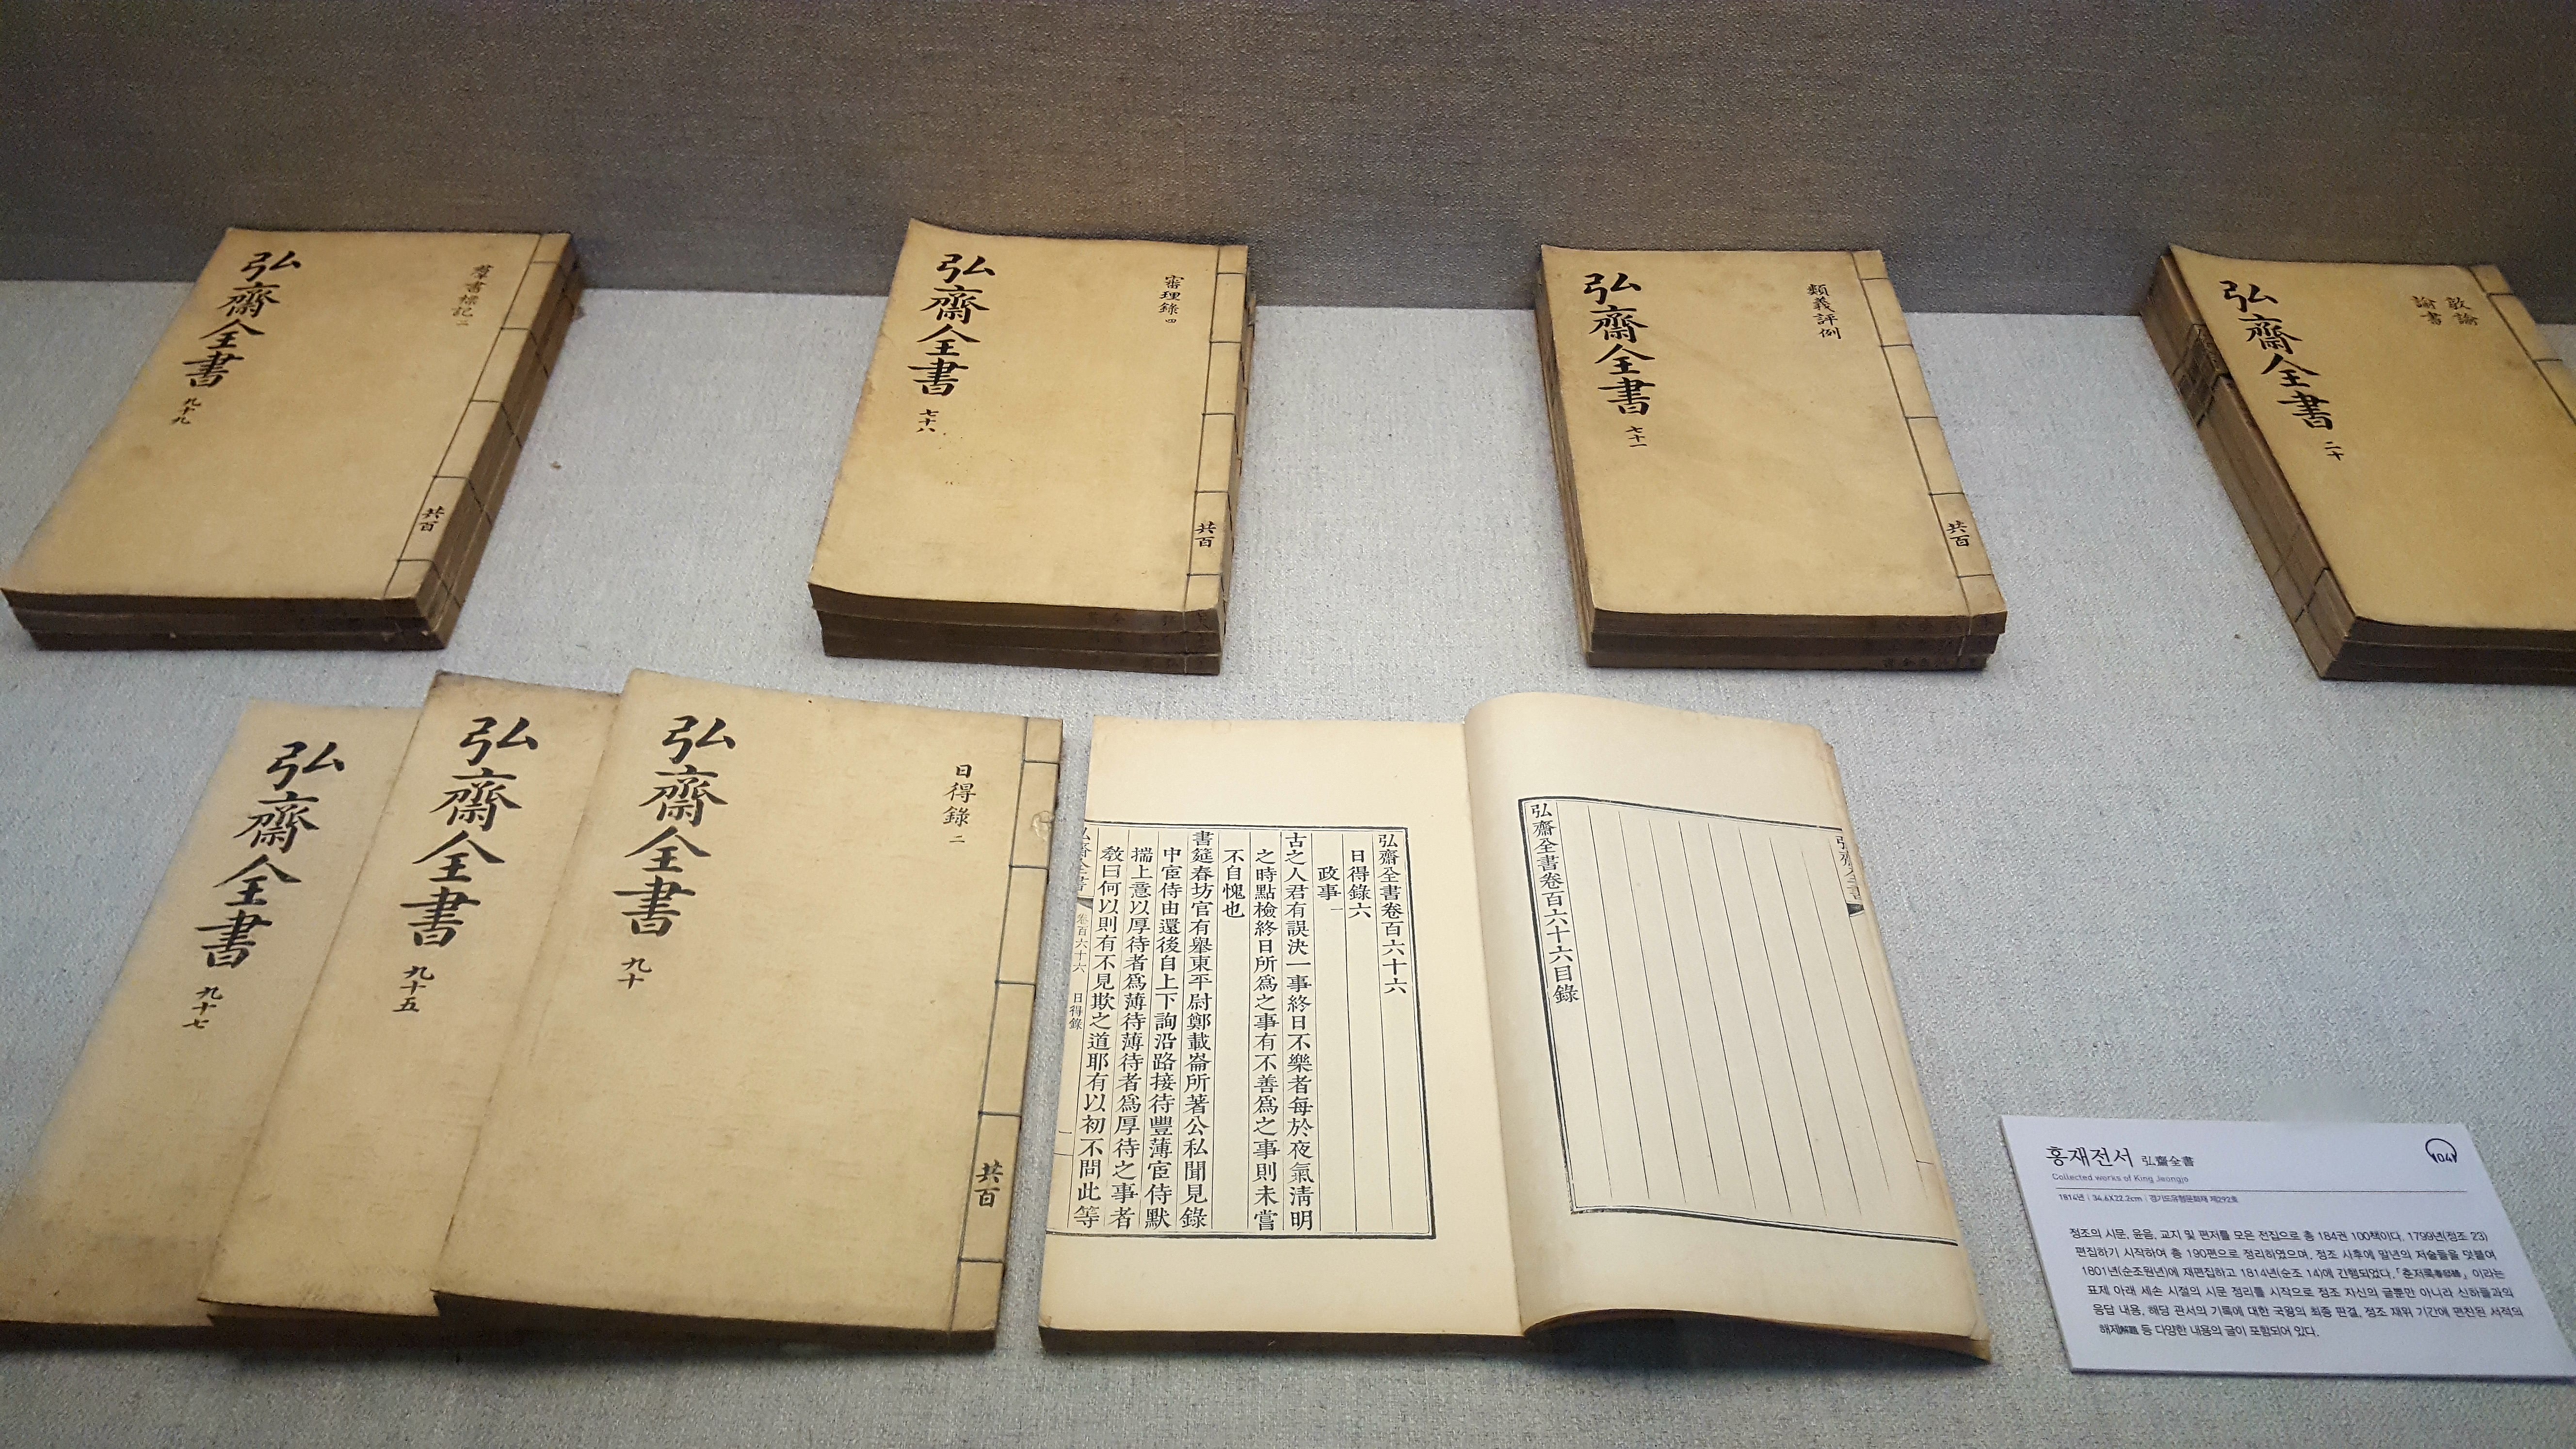 弘齋全書 九十九
羣書標記 二
共百
弘齋全書 七十八
審理錄 四
共百
弘齋全書 七十一
類義評例
共百
弘齋全書 二十
敦諭
諭書
弘齋全書 九十七
弘齋全書 九十五
弘齋全書 九十
日得錄 二
共百
弘齋全書卷百六十六目錄
弘齋全書卷百六十六
日得錄六
政事一
古之人君有誤決一事終日不樂者每於夜氣淸明
之時點檢終日所爲之事有不善爲之事則未嘗
不自愧也
書筵春坊官有舉東平尉鄭載崙所著公私聞見錄
中宦侍由還後自上下詢沿路接待豐薄宦侍默
揣上意以厚待者爲薄待薄待者爲厚待之事者
敎曰何以則有不見欺之道耶有以初不問此等
弘齋全書 卷百六十六 日得錄
홍재전서 弘齋全書
104
Collected works of King Jeongjo
1814년 | 34.6X22.2cm | 경기도유형문화재 제292호
정조의 시문, 윤음, 교지 및 편저를 모은 전집으로 총 184권 100책이다. 1799년(정조 23)
편집하기 시작하여 총 190편으로 정리하였으며, 정조 사후에 말년의 저술들을 덧붙여
1801년(순조원년)에 재편집하고 1814년(순조 14)에 간행되었다. 「춘저록」이라는
표제 아래 세손 시절의 시문 정리를 시작으로 정조 자신의 글뿐만 아니라 신하들과의
응답 내용, 해당 관서의 기록에 대한 국왕의 최종 판결, 정조 재위 기간에 편찬된 서적의
해제 등 다양한 내용의 글이 포함되어 있다.